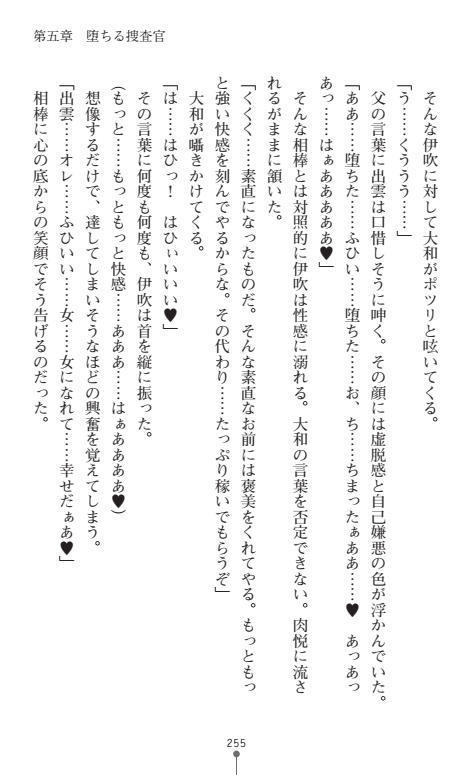 第五章　堕ちる捜査官
そんな伊吹に対して大和がポツリと呟いてくる。
「う……くううう……」
父の言葉に出雲は口惜しそうに呻く。その顔には虚脱感と自己嫌悪の色が浮かんでいた。
「ああ……堕ちた……ふひい……堕ちた……お、ち……ちまったぁああ……♥　あっあっ
あっ……はぁああああぁ♥」
そんな相棒とは対照的に伊吹は性感に溺れる。大和の言葉を否定できない。肉悦に流さ
れるがままに頷いた。
「くくく……素直になったものだ。そんな素直なお前には褒美をくれてやる。もっともっ
と強い快感を刻んでやるからな。その代わり……たっぷり稼いでもらうぞ」
大和が囁きかけてくる。
「は……はひっ！　はひぃいいい♥」
その言葉に何度も何度も、伊吹は首を縦に振った。
（もっと……もっともっと快感……あああ……はぁああああ♥）
想像するだけで、達してしまいそうなほどの興奮を覚えてしまう。
「出雲……オレ……ふひいい……女……女になれて……幸せだぁあ♥」
相棒に心の底からの笑顔でそう告げるのだった。
255